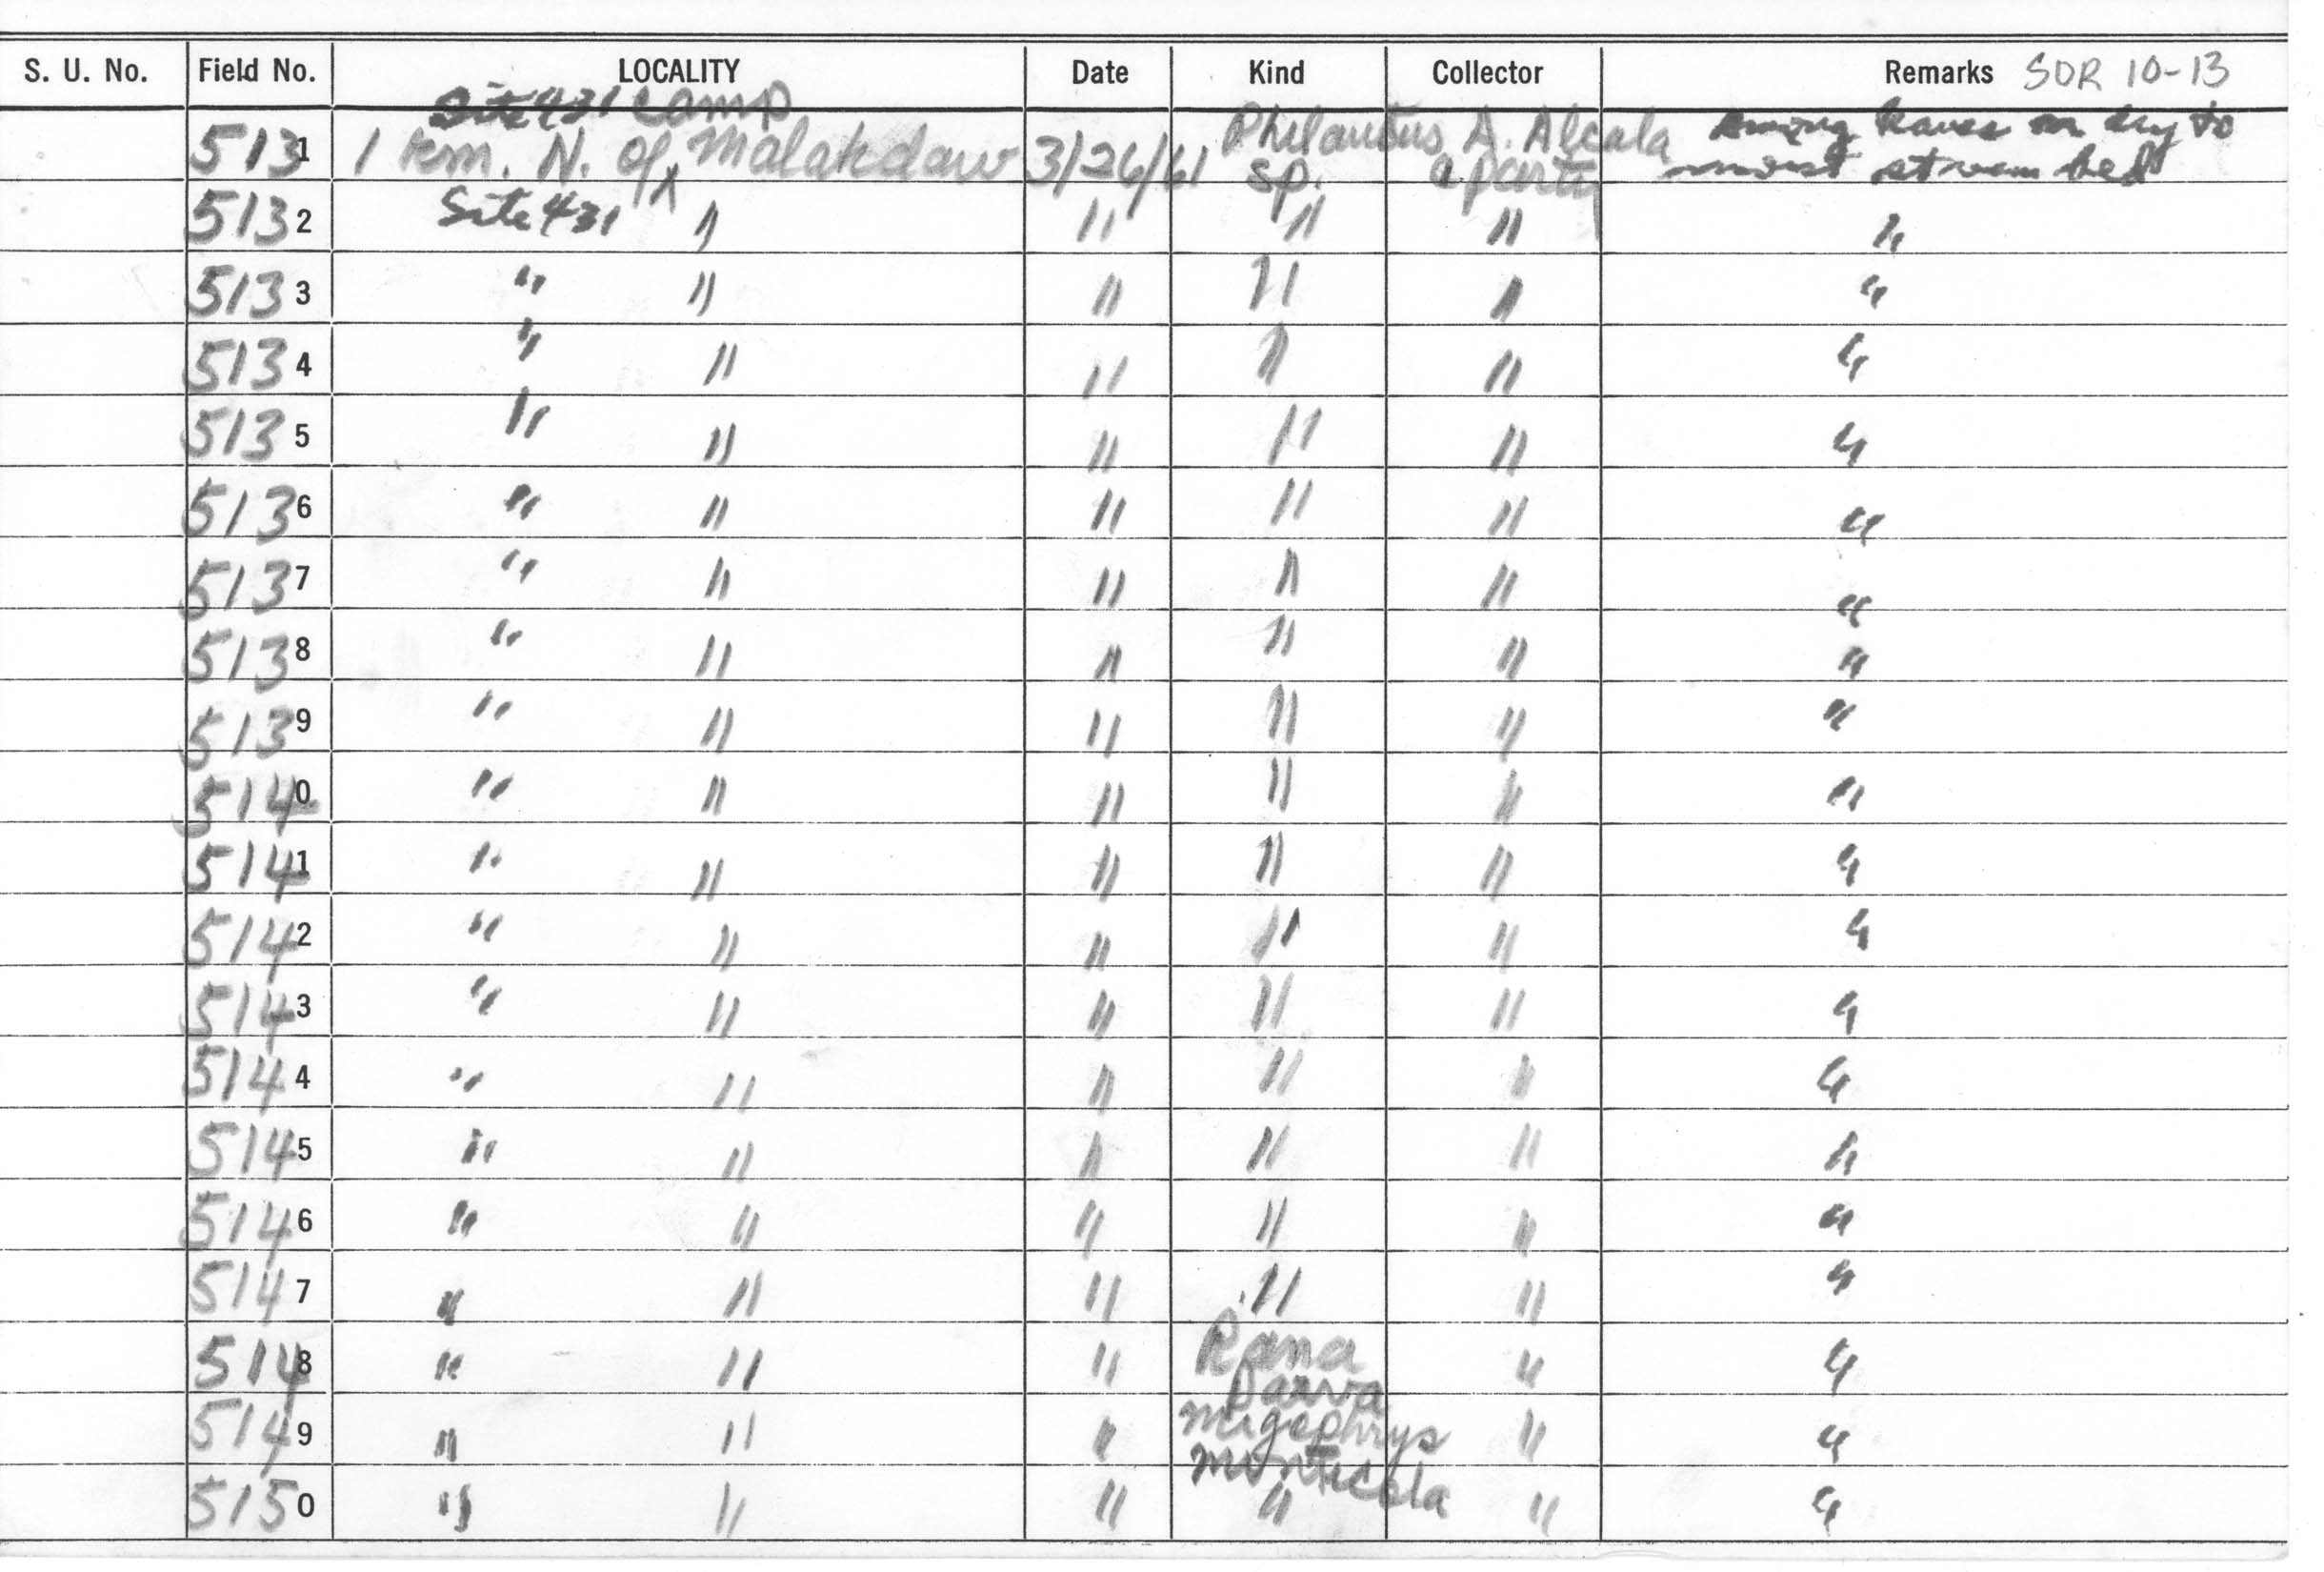 S. U. No. Field No. LOCALITY Date Kind Collector Remarks SDR 10-13
Site 431 camp
5131 1 km. N. of ^ Malakdaw 3/26/61 Philautus sp. A. Alcala & party Among leaves on dry to moist stream bed
5132 Site 431 " " " " "
5133 " " " " " "
5134 " " " " " "
5135 " " " " " "
5136 " " " " " "
5137 " " " " " "
5138 " " " " " "
5139 " " " " " "
5140 " " " " " "
5141 " " " " " "
5142 " " " " " "
5143 " " " " " "
5144 " " " " " "
5145 " " " " " "
5146 " " " " " "
5147 " " " " " "
5148 " " " Rana parva " "
5149 " " " Megophrys monticola " "
5150 " " " " " "